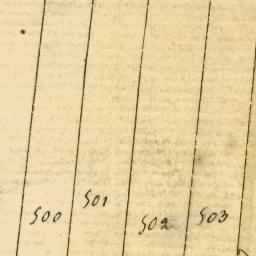 500
501
502
503